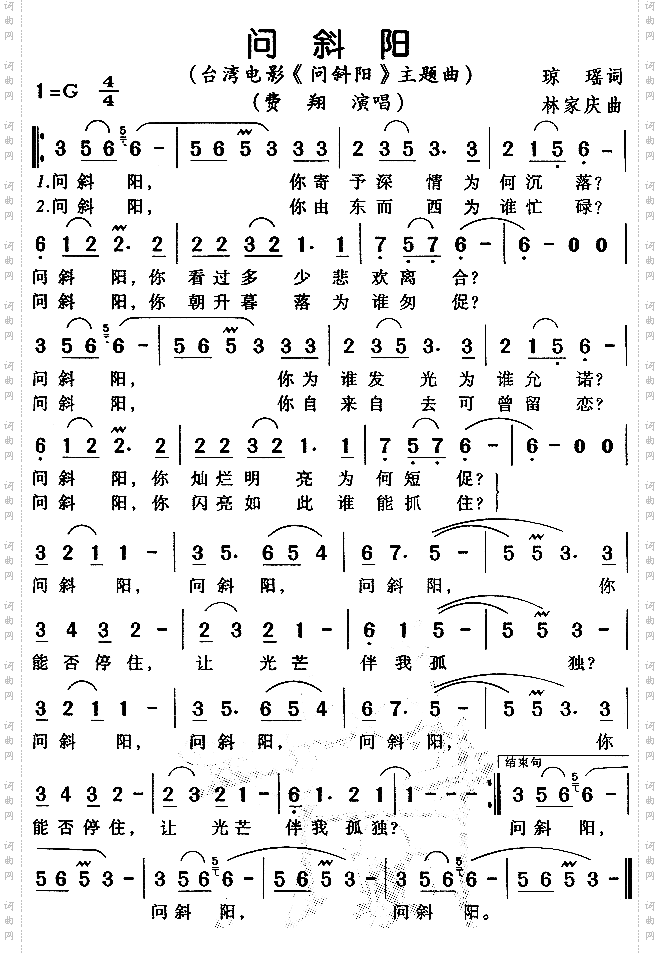 问 斜 阳
(台湾电影《问斜阳》主题曲) 琼 瑶 词
1=G 4/4 (费 翔 演唱) 林家庆 曲
3 5 6 5 6 - | 5 6 5 3 3 3 | 2 3 5 3. 3 | 2 1 5 6 - |
1.问 斜 阳, 你 寄 予 深 情 为 何 沉 落?
2.问 斜 阳, 你 由 东 而 西 为 谁 忙 碌?
6 1 2 2 2. 2 | 2 2 2 3 2 1. 1 | 7 5 7 6 - | 6 - 0 0
问 斜 阳, 你 看 过 多 少 悲 欢 离 合?
问 斜 阳, 你 朝 升 暮 落 为 谁 匆 促?
3 5 6 5 6 - | 5 6 5 3 3 3 | 2 3 5 3. 3 | 2 1 5 6 - |
问 斜 阳, 你 为 谁 发 光 为 谁 允 诺?
问 斜 阳, 你 自 来 自 去 可 曾 留 恋?
6 1 2 2 2. 2 | 2 2 2 3 2 1. 1 | 7 5 7 6 - | 6 - 0 0
问 斜 阳, 你 灿 烂 明 亮 为 何 短 促?
问 斜 阳, 你 闪 亮 如 此 谁 能 抓 住?
3 2 1 1 - | 3 5. 6 5 4 | 6 7. 5 - | 5 5 3. 3 |
问 斜 阳, 问 斜 阳, 问 斜 阳, 你
3 4 3 2 - | 2 3 2 1 - | 6 1 5 - | 5 5 3 - |
能 否 停 住, 让 光 芒 伴 我 孤 独?
3 2 1 1 - | 3 5. 6 5 4 | 6 7. 5 - | 5 5 3. 3 |
问 斜 阳, 问 斜 阳, 问 斜 阳, 你
结束句
3 4 3 2 - | 2 3 2 1 - | 6 1. 2 1 | 1 - - - | 3 5 6 5 6 - |
能 否 停 住, 让 光 芒 伴 我 孤 独? 问 斜 阳,
5 6 5 3 - | 3 5 6 5 6 - | 5 6 5 3 - | 3 5 6 5 6 - | 5 6 5 3 - |
问 斜 阳, 问 斜 阳。
词曲网